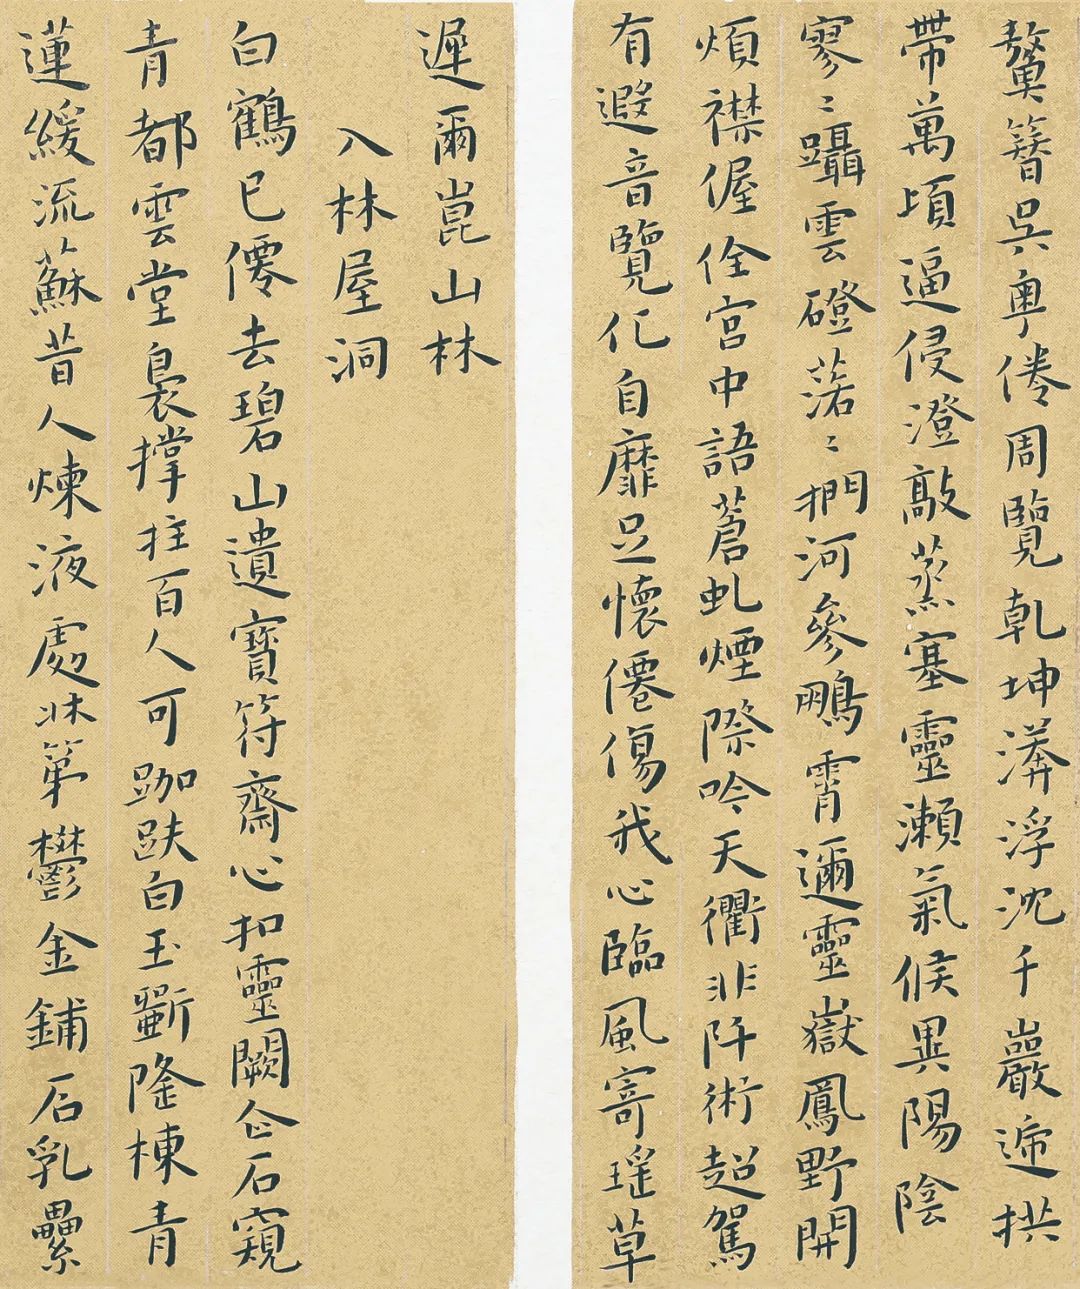 鼇簪吳粵倦周覽乾坤漭浮沈千巖遞拱
帶萬頃逼侵澄敲蒸塞靈瀨氣候異陽陰
寥〻躡雲磴落〻捫河參鵬霄邇靈嶽鳳野開
煩襟偓佺宮中語蒼虬煙際吟天衢非阡術超駕
有遐音覽化自靡足懷僊傷我心臨風寄瑤草
遲爾崑山林
入林屋洞
白鶴已僊去碧山遺寶符齋心扣靈闕企石窺
青都雲堂裊撐拄百人可跏趺白玉斵隆棟青
蓮緩流蘇昔人煉液處牀第鬱金鋪石乳纍